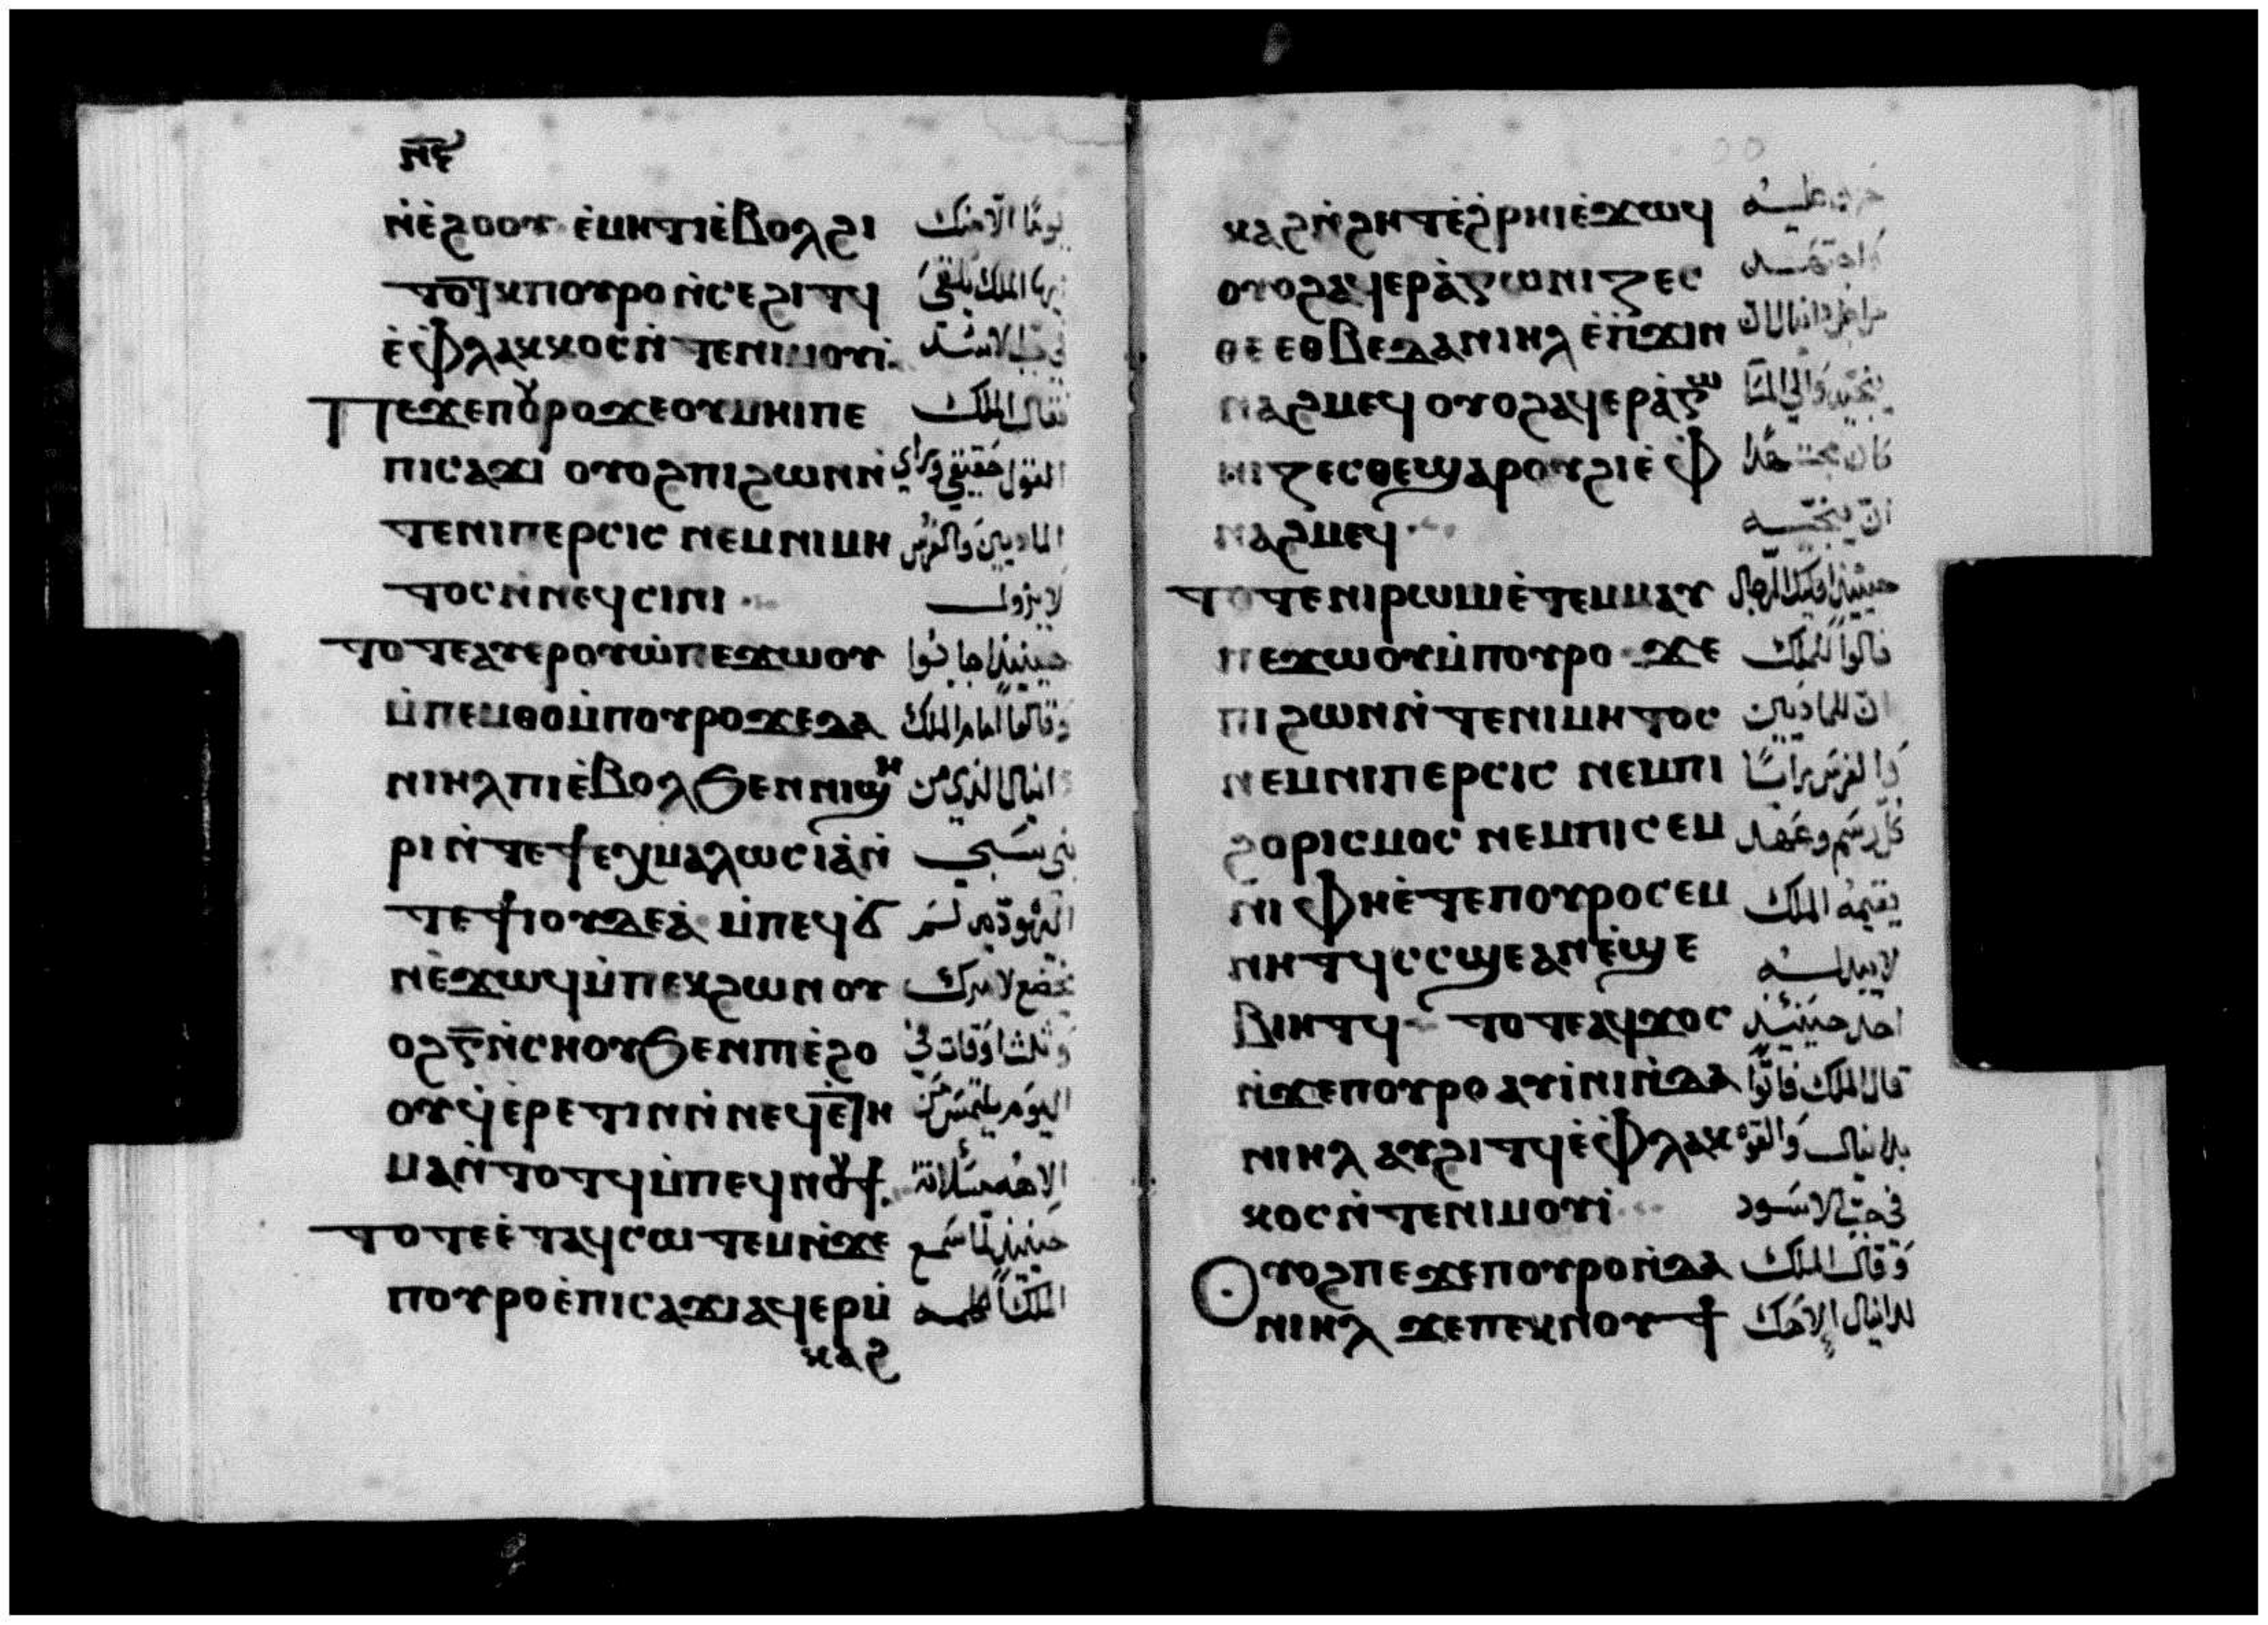 ⲛ̅ⲋ̅
ⲛ̀ⲉ̀ϩⲟⲟⲩ ⲉ̀ⲙⲏϯⲉ̀ⲃⲟⲗϩⲓ يومًا الّا منك
ⲧⲟⲧⲕ ⲡⲟⲩⲣⲟ ⲛ̀ⲥⲉϩⲓⲧϥ ايها الملك يلقى
ⲉ̀ⲫⲗⲁⲕⲕⲟⲥ ⲛ̀ⲧⲉⲛⲓⲙⲟⲩⲓ̀ في جب الاسد
ⲡⲉϫⲉⲡⲟⲩⲣⲟ ϫⲉⲟⲩⲙⲏⲓⲡⲉ فقال الملك
ⲡⲓⲥⲁϫⲓ ⲟⲩⲟϩⲡⲓϩⲱⲛⲛ̀ القول حقيقي وراي
ⲧⲉⲛⲓⲡⲉⲣⲥⲓⲥ ⲛⲉⲙⲛⲓⲙⲏ الماديين والفرس
ⲧⲟⲥ ⲛ̀ⲛⲉϥⲥⲓⲛⲓ لا يزول
ⲧⲟⲧⲉⲁⲩⲉⲣⲟⲩⲱ̀ⲡⲉϫⲱⲟⲩ حينيذٍ اجابوا
ⲙ̀ⲡⲉⲙⲑⲟⲙ̀ⲡⲟⲩⲣⲟϫⲉⲇⲁ وقالوا امام الملك
ⲛⲓⲏⲗⲡⲓⲉ̀ⲃⲟⲗϧⲉⲛⲛⲓϣⲏ دانيال الذي من
ⲣⲓⲛ̀ⲧⲉϯⲉⲭⲙⲁⲗⲱⲥⲓⲁ̀ⲛ̀ بني سبي
ⲧⲉϯⲓⲟⲩⲇⲉⲁ̀ ⲙ̀ⲡⲉϥϭ اليهوديه لم
ⲛⲉ̀ϫⲱϥⲙ̀ⲡⲉⲕϩⲱⲛ ⲟⲩ يخضع لامرك
ⲟϩⲅ̅ⲛ̀ⲥⲏⲟⲩϧⲉⲛⲡⲓⲉ̀ϩⲟ وثلث اوقات في
ⲟⲩϥⲉ̀ⲣⲉⲧⲓⲛⲛ̀ⲛⲉϥⲉ̀ⲧⲏ اليوم يلتمس من
ⲙⲁⲛ̀ⲧⲟⲧϥⲙ̀ⲡⲉϥⲛⲟⲩϯ الاهه مسلاته
ⲧⲟⲧⲉⲉ̀ⲧⲁϥⲥⲱⲧⲉⲙⲛ̀ϫⲉ حينيذٍ لما سمع
ⲡⲟⲩⲣⲟⲉ̀ⲡⲓⲥⲁϫⲓⲁϥⲉⲣⲙ̀ الملك
ⲕⲁϩ
ⲕⲁϩⲛ̀ϩⲏⲧⲉ̀ϩⲣⲏⲓⲉ̀ϫⲱϥ حزن عليه
ⲟⲩⲟϩⲁϥⲉⲣⲁ̀ⲅⲱⲛⲓⲍⲉⲥ واجتهد
ⲑⲉ ⲉⲑⲃⲉⲇⲁⲛⲓⲏⲗ ⲉ̀ⲡ̀ϫⲓⲛ من اجل دانيال ان
ⲛⲁϩⲙⲉϥ ⲟⲩⲟϩⲁϥⲉⲣⲁ̀ⲅⲱ ينجيه والي المسا
ⲛⲓⲍⲉⲥⲑⲉϣⲁⲣⲟⲩϩⲓⲉ̀ ⲫ كان مجتهدًا
ⲛⲁϩⲙⲉϥ ان ينجيه
ⲧⲟⲧⲉⲛⲓⲣⲱⲙⲓⲉ̀ⲧⲉⲙⲙⲁⲩ حينيذٍ اوليك الرجال
ⲡⲉϫⲱⲟⲩⲙ̀ⲡⲟⲩⲣⲟ ϫⲉ قالوا للملك
ⲡⲓϩⲱⲛⲛ̀ⲧⲉⲛⲓⲙⲏⲧⲟⲥ ان للماديين
ⲛⲉⲙⲛⲓⲡⲉⲣⲥⲓⲥ ⲛⲉⲙⲡⲓ والفرس
ϩⲟⲣⲓⲥⲙⲟⲥ ⲛⲉⲙⲡⲓⲥⲉⲙ كل رسم وعهد
ⲛⲓ ⲫⲏⲉ̀ⲧⲉⲡⲟⲩⲣⲟⲥⲉⲙ يقيمه الملك
ⲛⲏⲧϥⲥⲥϣⲉⲁⲛⲉ̀ϣⲉ لا يبدله
ⲃⲓⲏⲧϥ ⲧⲟⲧⲉⲁϥϫⲟⲥ احد حينيذٍ
ⲛ̀ϫⲉⲡⲟⲩⲣⲟ ⲁⲩⲓ̀ⲛⲓⲛ̀ⲇⲁ قال الملك فاتوا
ⲛⲓⲏⲗ ⲁⲩϩⲓⲧϥⲉ̀ⲫⲗⲁⲕ بدانيال والقوه
ⲕⲟⲥ ⲛ̀ⲧⲉⲛⲓⲙⲟⲩⲓ̀ في جب الاسود
ⲟⲩⲟϩⲡⲉϫⲉⲡⲟⲩⲣⲟⲛ̀ⲇⲁ وقال الملك
ⲛⲓⲏⲗ ϫⲉⲡⲉⲕⲛⲟⲩϯ لدانيال إلاهك